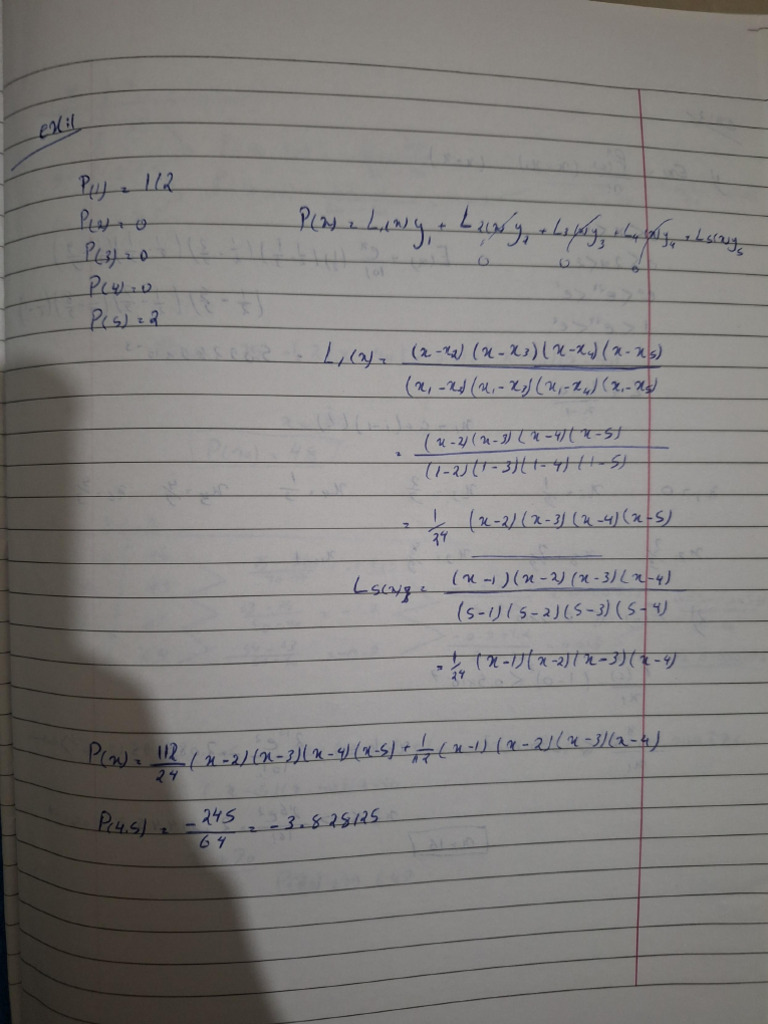 ex:1
P(1) = 112
P(2) = 0
P(x) = L₁(x)y₁ + L₂(x)y₂ + L₃(x)y₃ + L₄(x)y₄ + L₅(x)y₅
0 0 0
P(3) = 0
P(4) = 0
P(5) = 2
L₁(x) = (x-x₂)(x-x₃)(x-x₄)(x-x₅) / (x₁-x₂)(x₁-x₃)(x₁-x₄)(x₁-x₅)
= (x-2)(x-3)(x-4)(x-5) / (1-2)(1-3)(1-4)(1-5)
= 1/24 (x-2)(x-3)(x-4)(x-5)
L₅(x) = (x-1)(x-2)(x-3)(x-4) / (5-1)(5-2)(5-3)(5-4)
= 1/24 (x-1)(x-2)(x-3)(x-4)
P(x) = 112/24 (x-2)(x-3)(x-4)(x-5) + 1/12 (x-1)(x-2)(x-3)(x-4)
P(4.5) = -245/64 = -3.828125